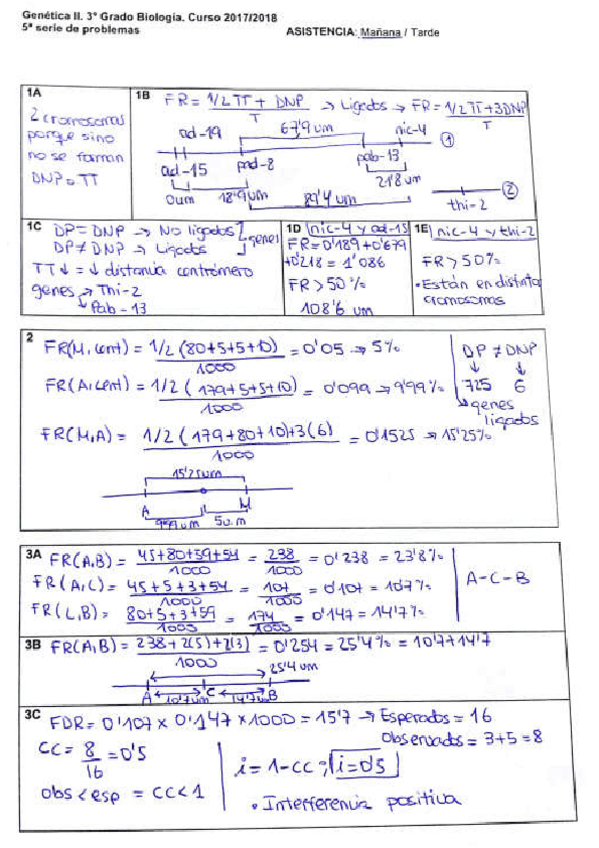 Genética II. 3º Grado Biología. Curso 2017/2018
5ª serie de problemas
ASISTENCIA: Mañana / Tarde
1A
2 cromosomas
porque sino
no se forman
DNP = TT
1B FR = 1/2 TT + DNP / T → Ligados → FR = 1/2 TT + 3DNP / T
67'9 um
ad-19
nic-4
1
ad-15
pad-8
pab-13
0um
18'9um
89'4 um
21'8 um
2
thi-2
1C DP = DNP → No ligados
DP ≠ DNP → Ligados
genes
TT↓ = ↓ distancia centrómero
genes → Thi-2
→ Pab-13
1D nic-4 y ad-15
FR = 0'189 + 0'679
+ 0'218 = 1'086
FR > 50%
108'6 um
1E nic-4 y thi-2
FR > 50%
• Están en distinto
cromosomas
2
FR(M, cent) = 1/2 (80+5+5+10) / 1000 = 0'05 → 5%
FR(A, cent) = 1/2 (179+5+5+10) / 1000 = 0'099 → 9'99%
FR(M,A) = 1/2 (179+80+10)+3(6) / 1000 = 0'1525 → 15'25%
DP ≠ DNP
↓ ↓
725 6
→ genes
ligados
15'25um
A
M
9'99 um
5u.m
3A FR(A,B) = 45+80+59+54 / 1000 = 238 / 1000 = 0'238 = 23'8%
FR(A,C) = 45+5+3+54 / 1000 = 107 / 1000 = 0'107 = 10'7%
FR(C,B) = 80+5+3+59 / 1000 = 174 / 1000 = 0'147 = 14'7%
A-C-B
3B FR(A,B) = 238+2(5)+2(3) / 1000 = 0'254 = 25'4% = 10'7+14'7
25'4 um
A C B
10'7um
14'7um
3C FDR = 0'107 × 0'147 × 1000 = 15'7 → Esperados = 16
Observados = 3+5 = 8
CC = 8 / 16 = 0'5
obs < esp = CC < 1
i = 1-CC; i = 0'5
• Interferencia positiva